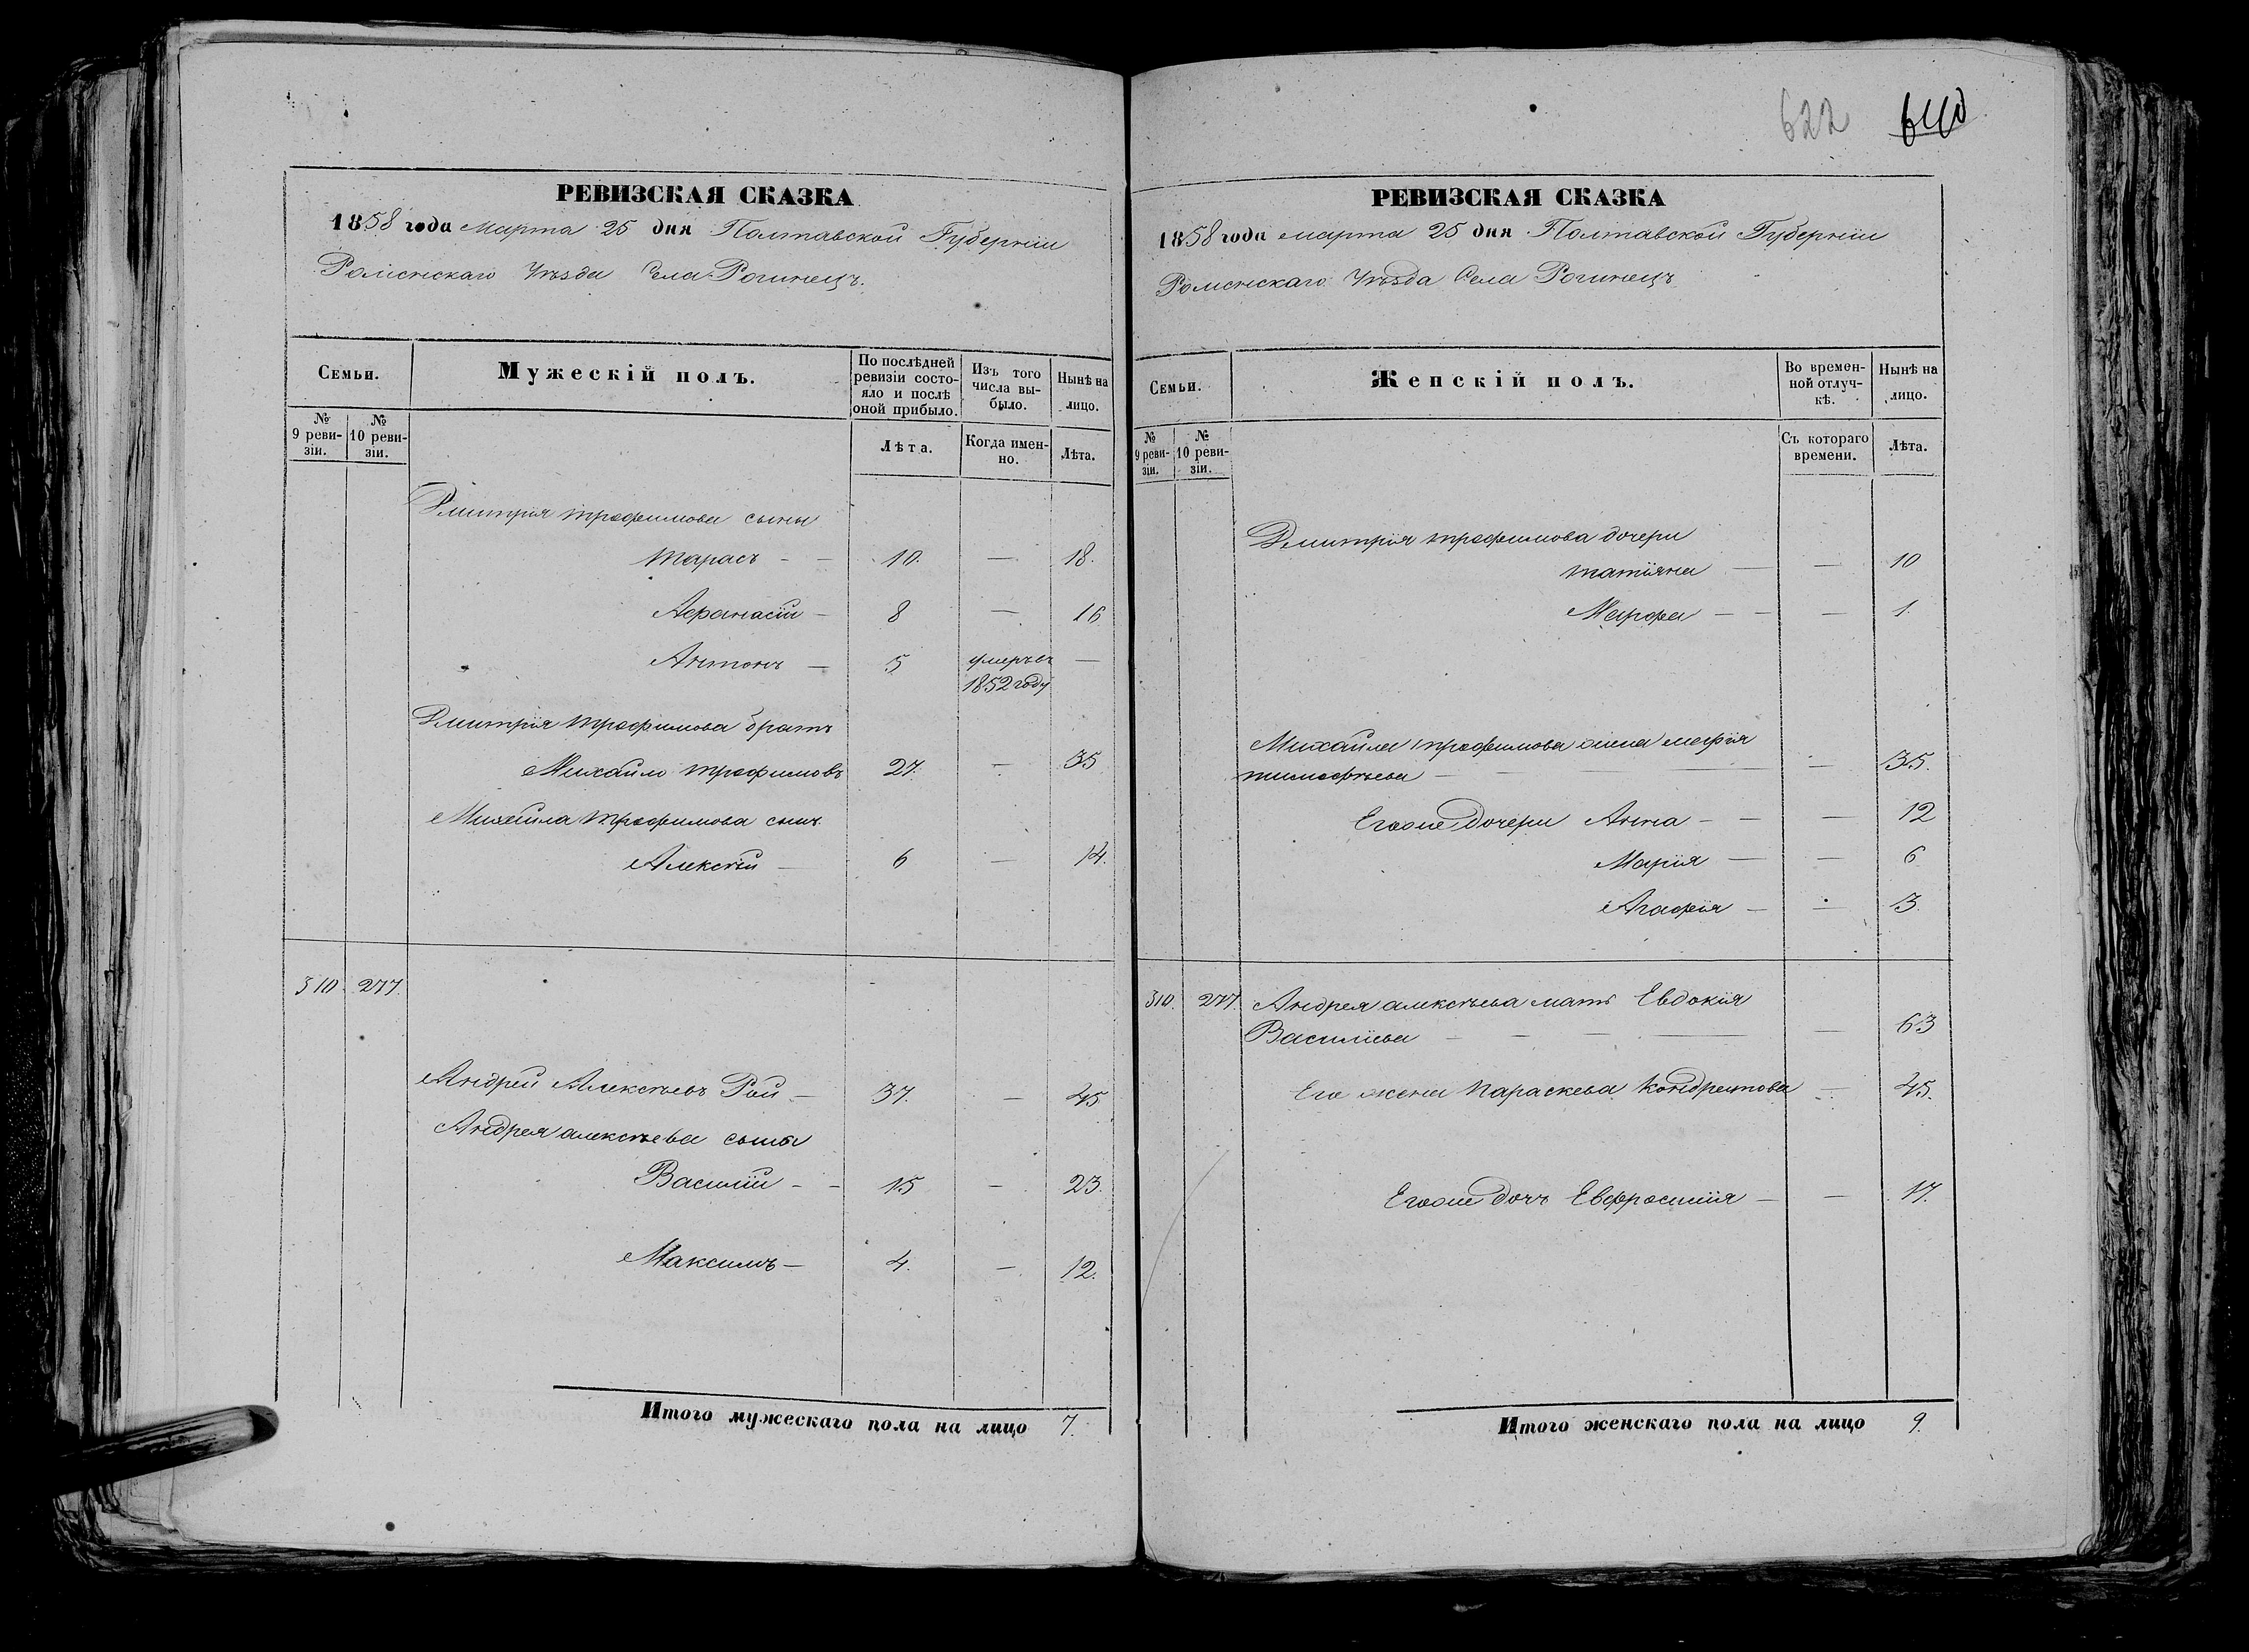 РЕВИЗСКАЯ СКАЗКА
1858 года Марта 25 дня Полтавской Губерніи
Роменскаго Уѣзда Села Рогинецъ.
Семьи.
Мужескій полъ.
По послѣдней ревизіи состояло и послѣ оной прибыло.
Изъ того числа выбыло.
Нынѣ на лицо.
№ 9 ревизіи.
№ 10 ревизіи.
Лѣта.
Когда именно.
Лѣта.
Дмитрія трофимова сыны
тарасъ - - 10. — 18.
Афанасій - 8 — 16
Антонъ — 5 умеръ въ —
1852 году
Дмитрія трофимова братъ
Михайло трофимовъ 27. — 35
Михайла трофимова сынъ
Алексѣй — 6 — 14.
310. 277.
Андрей Алексѣевъ Рой — 37. — 45
Андрея алексѣева сыны
Василій - - 15 — 23.
Максимъ — 4. — 12.
Итого мужескаго пола на лицо 7.
622 640
РЕВИЗСКАЯ СКАЗКА
1858 года марта 25 дня Полтавской Губерніи
Роменскаго Уѣзда Села Рогинецъ
Семьи.
Женскій полъ.
Во временной отлучкѣ.
Нынѣ на лицо.
№ 9 ревизіи.
№ 10 ревизіи.
Съ котораго времени.
Лѣта.
Дмитрія трофимова дочери
татіяна — — 10
Марфа — - — 1.
Михайла трофимова жена
тимофѣева — — 35.
Егоже дочери Анна - - — 12
Марія — — 6
Агафія — — 3.
310. 277. Андрея алексѣева мать Евдокія
Василіева - - - — — 63
Его жена параскева кондратова — 45.
Егоже дочь Евфросинія — — 17.
Итого женскаго пола на лицо 9.